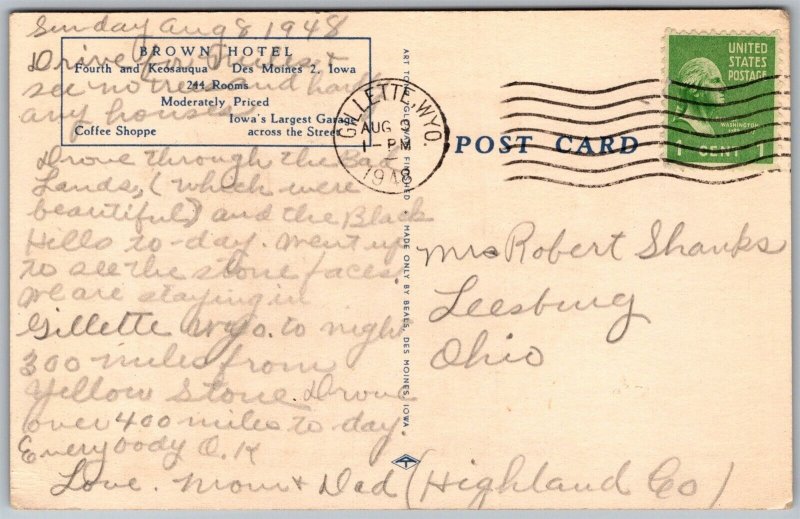 Sunday Aug 8 1948
BROWN HOTEL
Fourth and Keosauqua Des Moines 2, Iowa
244 Rooms
Moderately Priced
Iowa's Largest Garage
Coffee Shoppe across the Street
Drive for miles &
see no trees and hardly
any houses
Drove through the Bad
Lands, (which were
beautiful) and the Black
Hills to-day. Went up
to see the stone faces.
We are staying in
Gillette Wyo. to night
300 miles from
Yellow Stone. Drove
over 400 miles to day.
Everybody O.K
Love. Mom & Dad (Highland Co)
MADE ONLY BY BEALS, DES MOINES, IOWA
GILLETTE, WYO.
AUG
1 - PM
1948
POST CARD
UNITED
STATES
POSTAGE
WASHINGTON
1 CENT 1
Mrs Robert Shanks
Leesburg
Ohio